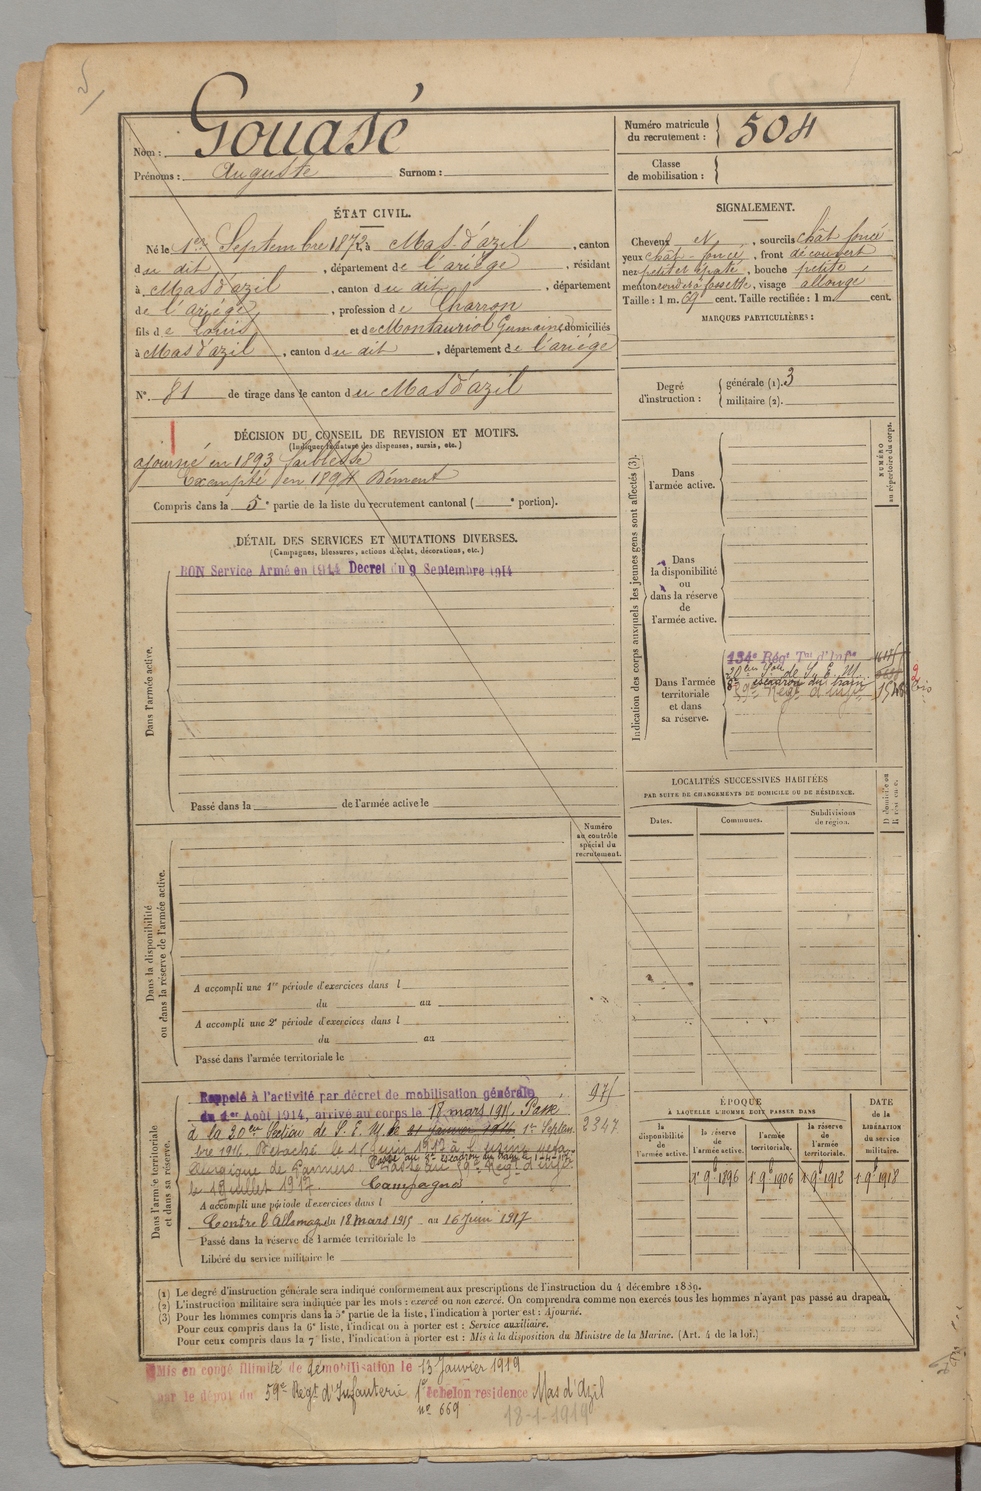 Nom : Gouazé
Prénoms : Auguste Surnom :
Numéro matricule du recrutement : 504
Classe de mobilisation :
ÉTAT CIVIL.
Né le 1er Septembre 1872 à Mas-d'azil, canton
du dit, département de l'ariège, résidant
à Mas d'azil, canton du dit, département
de l'ariège, profession de Charron
fils de Louis et de Montauriol Germaine domiciliés
à Mas d'azil, canton du dit, département de l'ariège
N° 81 de tirage dans le canton du Mas d'azil
SIGNALEMENT.
Cheveux et N, sourcils chât foncé
yeux chât-foncé, front découvert
nez petit et épaté, bouche petite
menton rond à fossette, visage allongé
Taille : 1 m. 69 cent. Taille rectifiée : 1 m. cent.
MARQUES PARTICULIÈRES :
Degré d'instruction : générale (1). 3
militaire (2).
DÉCISION DU CONSEIL DE REVISION ET MOTIFS.
(Indiquer la nature des dispenses, sursis, etc.)
ajourné en 1893 faiblesse
Exempté en 1894
Compris dans la 5e partie de la liste du recrutement cantonal ( e portion).
DÉTAIL DES SERVICES ET MUTATIONS DIVERSES.
(Campagnes, blessures, actions d'éclat, décorations, etc.)
Dans l'armée active.
BON Service Armé en 1914 Décret du 9 Septembre 1914
Passé dans la de l'armée active le
Indication des corps auxquels les jeunes gens sont affectés (3).
NUMÉRO au répertoire du corps.
Dans l'armée active.
Dans la disponibilité ou dans la réserve de l'armée active.
Dans l'armée territoriale et dans sa réserve.
134e Régt Tal d'Infie
20em Son de S. E. M.
escadron du train
Régt d'infie
2 bis
LOCALITÉS SUCCESSIVES HABITÉES
PAR SUITE DE CHANGEMENTS DE DOMICILE OU DE RÉSIDENCE.
Dates.
Communes.
Subdivisions de région.
D domicile ou R résidence.
Numéro au contrôle spécial du recrutement.
Dans la disponibilité ou dans la réserve de l'armée active.
A accompli une 1re période d'exercices dans l
du au
A accompli une 2e période d'exercices dans l
du au
Passé dans l'armée territoriale le
Dans l'armée territoriale et dans sa réserve.
Rappelé à l'activité par décret de mobilisation générale
du 1er Août 1914, arrivé au corps le 18 mars 1915. Passé
à la 20em Section de S. E. M. le 21 Janvier 1916 1er Septem
bre 1916. Détaché le 15 Juin 1917 à l'usine méta
llurgique de Pamiers. Passé au escadron du train Passé au 59e Régt d'infie
le 1 Juillet 1917. Campagnes
A accompli une période d'exercices dans l
Contre l'Allemag du 18 mars 1915 au 16 Juin 1917
Passé dans la réserve de l'armée territoriale le
Libéré du service militaire le
975
2347
ÉPOQUE
A LAQUELLE L'HOMME DOIT PASSER DANS
la disponibilité de l'armée active.
la réserve de l'armée active.
l'armée territoriale.
la réserve de l'armée territoriale.
DATE de la LIBÉRATION du service militaire.
1er 9b 1896
1 9b 1906
1 9b 1912
1 9b 1918
(1) Le degré d'instruction générale sera indiqué conformément aux prescriptions de l'instruction du 4 décembre 1889.
(2) L'instruction militaire sera indiquée par les mots : exercé ou non exercé. On comprendra comme non exercés tous les hommes n'ayant pas passé au drapeau.
(3) Pour les hommes compris dans la 5e partie de la liste, l'indication à porter est : Ajourné.
Pour ceux compris dans la 6e liste, l'indication à porter est : Service auxiliaire.
Pour ceux compris dans la 7e liste, l'indication à porter est : Mis à la disposition du Ministre de la Marine. (Art. 4 de la loi.)
Mis en congé illimité de démobilisation le 13 Janvier 1919
par le dépot du 59e Régt d'Infanterie 1e échelon residence Mas d'Azil
n° 669
18-1-1919